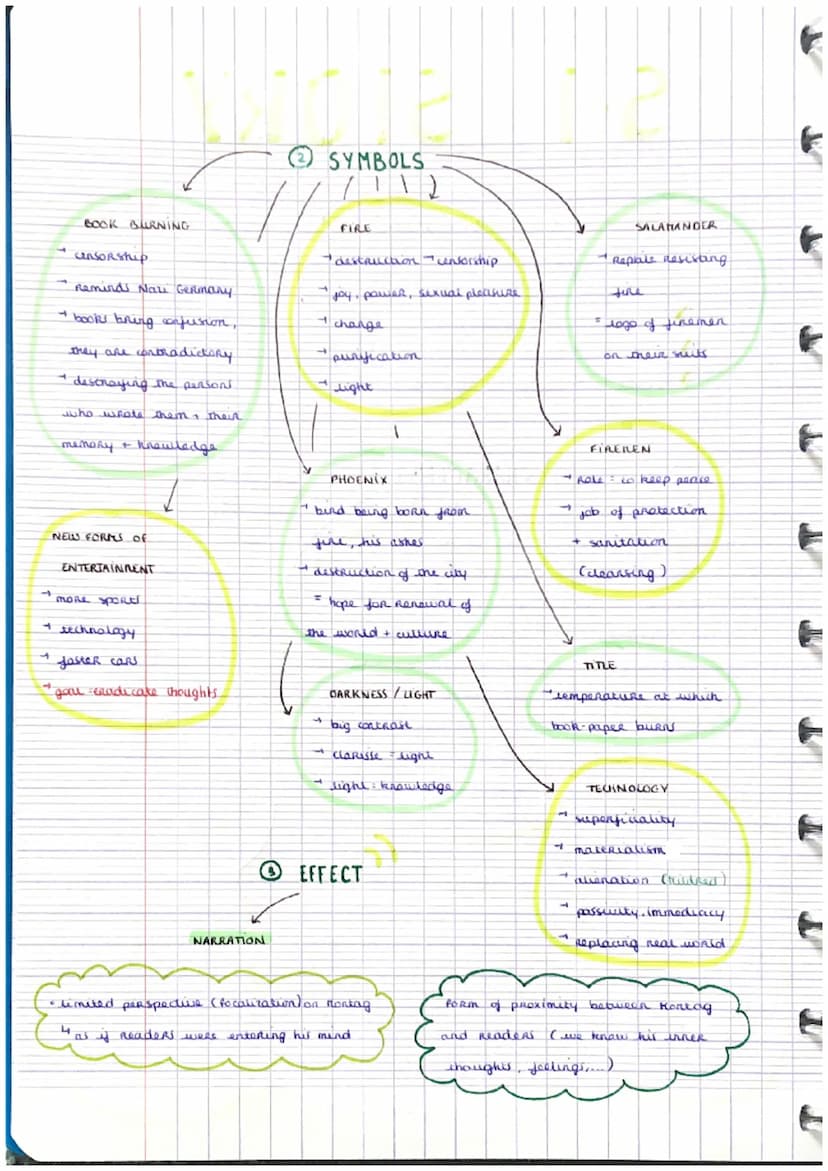 ② SYMBOLS
BOOK BURNING
→ censorship
→ Reminds Nazi Germany
→ books bring confusion,
they are contradictory
→ destroying the persons
who wrote them + their
memory + knowledge
FIRE
→ destruction → censorship
→ joy, power, sexual pleasure
→ change
→ purification
→ light
SALAMANDER
→ Reptile resisting
fire
= logo of firemen
on their suits
FIREMEN
→ Role = to keep peace
→ job of protection
+ sanitation
(cleansing)
PHOENIX
→ bird being born from
fire, his ashes
→ destruction of the city
= hope for renewal of
the world + culture
NEW FORMS OF
ENTERTAINMENT
→ more sports
→ technology
→ faster cars
→ goal = eradicate thoughts
DARKNESS / LIGHT
→ big contrast
→ Clarisse = light
→ light = knowledge
TITLE
→ temperature at which
book-paper burns
TECHNOLOGY
→ superficiality
→ materialism
→ alienation (Mildred)
→ passivity, immediacy
→ replacing real world
③ EFFECT
NARRATION
• limited perspective (focalization) on Montag
↳ as if readers were entering his mind
form of proximity between Montag
and readers (we know his inner
thoughts, feelings,...)